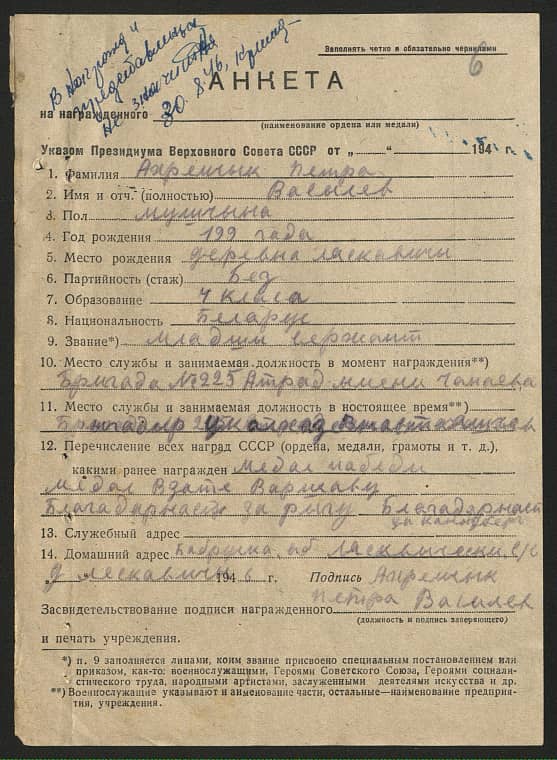 Заполнять четко и обязательно чернилами
6
В Награжд
30.8.46
АНКЕТА
на награжденного
(наименование ордена или медали)
Указом Президиума Верховного Совета СССР от „ “ 194 г.
1. Фамилия Ахремчык Петра
2. Имя и отч. (полностью) Васылев
3. Пол мушчына
4. Год рождения 199 года
5. Место рождения деревна Ласкавичи
6. Партийность (стаж) Без
7. Образование 4 класа
8. Национальность Беларус
9. Звание*) младши сержант
10. Место службы и занимаемая должность в момент награждения**)
Бригада №225 Атрад имени Чапаева
11. Место службы и занимаемая должность в настоящее время**)
Брыгадир
12. Перечисление всех наград СССР (ордена, медали, грамоты и т. д.),
какими ранее награжден Медал победи
Медал Взате Варшаву
Благадарнасть за ригу Благадарнасть
за
13. Служебный адрес
14. Домашний адрес Бабруйска обл. с/с
д Ласкавичы 1946 г. Подпись Ахремчык
Петра Васылев
Засвидетельствование подписи награжденного
(должность и подпись заверяющего)
и печать учреждения.
*) п. 9 заполняется лицами, коим звание присвоено специальным постановлением или
приказом, как-то: военнослужащими, Героями Советского Союза, Героями социали-
стического труда, народными артистами, заслуженными деятелями искусства и др.
**) Военнослужащие указывают наименование части, остальные—наименование предприя-
тия, учреждения.